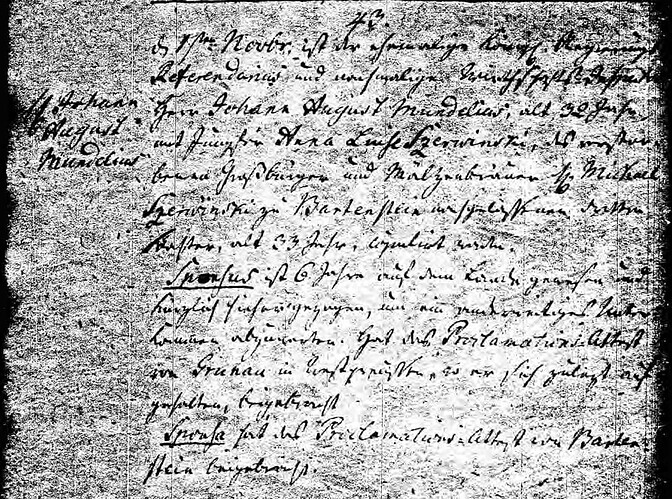 43.
d. 1ten Novbr. ist der ehemalige Königl. Regierungs
Referendarius und nachmalige Wirthschafts-
Herr Johann August Mundelius, alt 32 Jahr
mit Jungfer Anna Luise Szerwinski, des verstor-
benen Großbürger und Mälzenbräuer H. Michael
Szerwinski zu Bartenstein nachgelassenen dritten
Tochter, alt 33 Jahr, copulirt worden.
H. Johann
August
Mundelius
Sponsus ist 6 Jahre auf dem Lande gewesen und
kürzlich hieher gezogen, um ein anderweitiges Unter-
kommen abzuwarten. Hat das Proclamations-Attest
von Grunau in Westpreußen, wo er sich zuletzt auf-
gehalten, beigebracht.
Sponsa hat das Proclamations-Attest von Barten-
stein beigebracht.